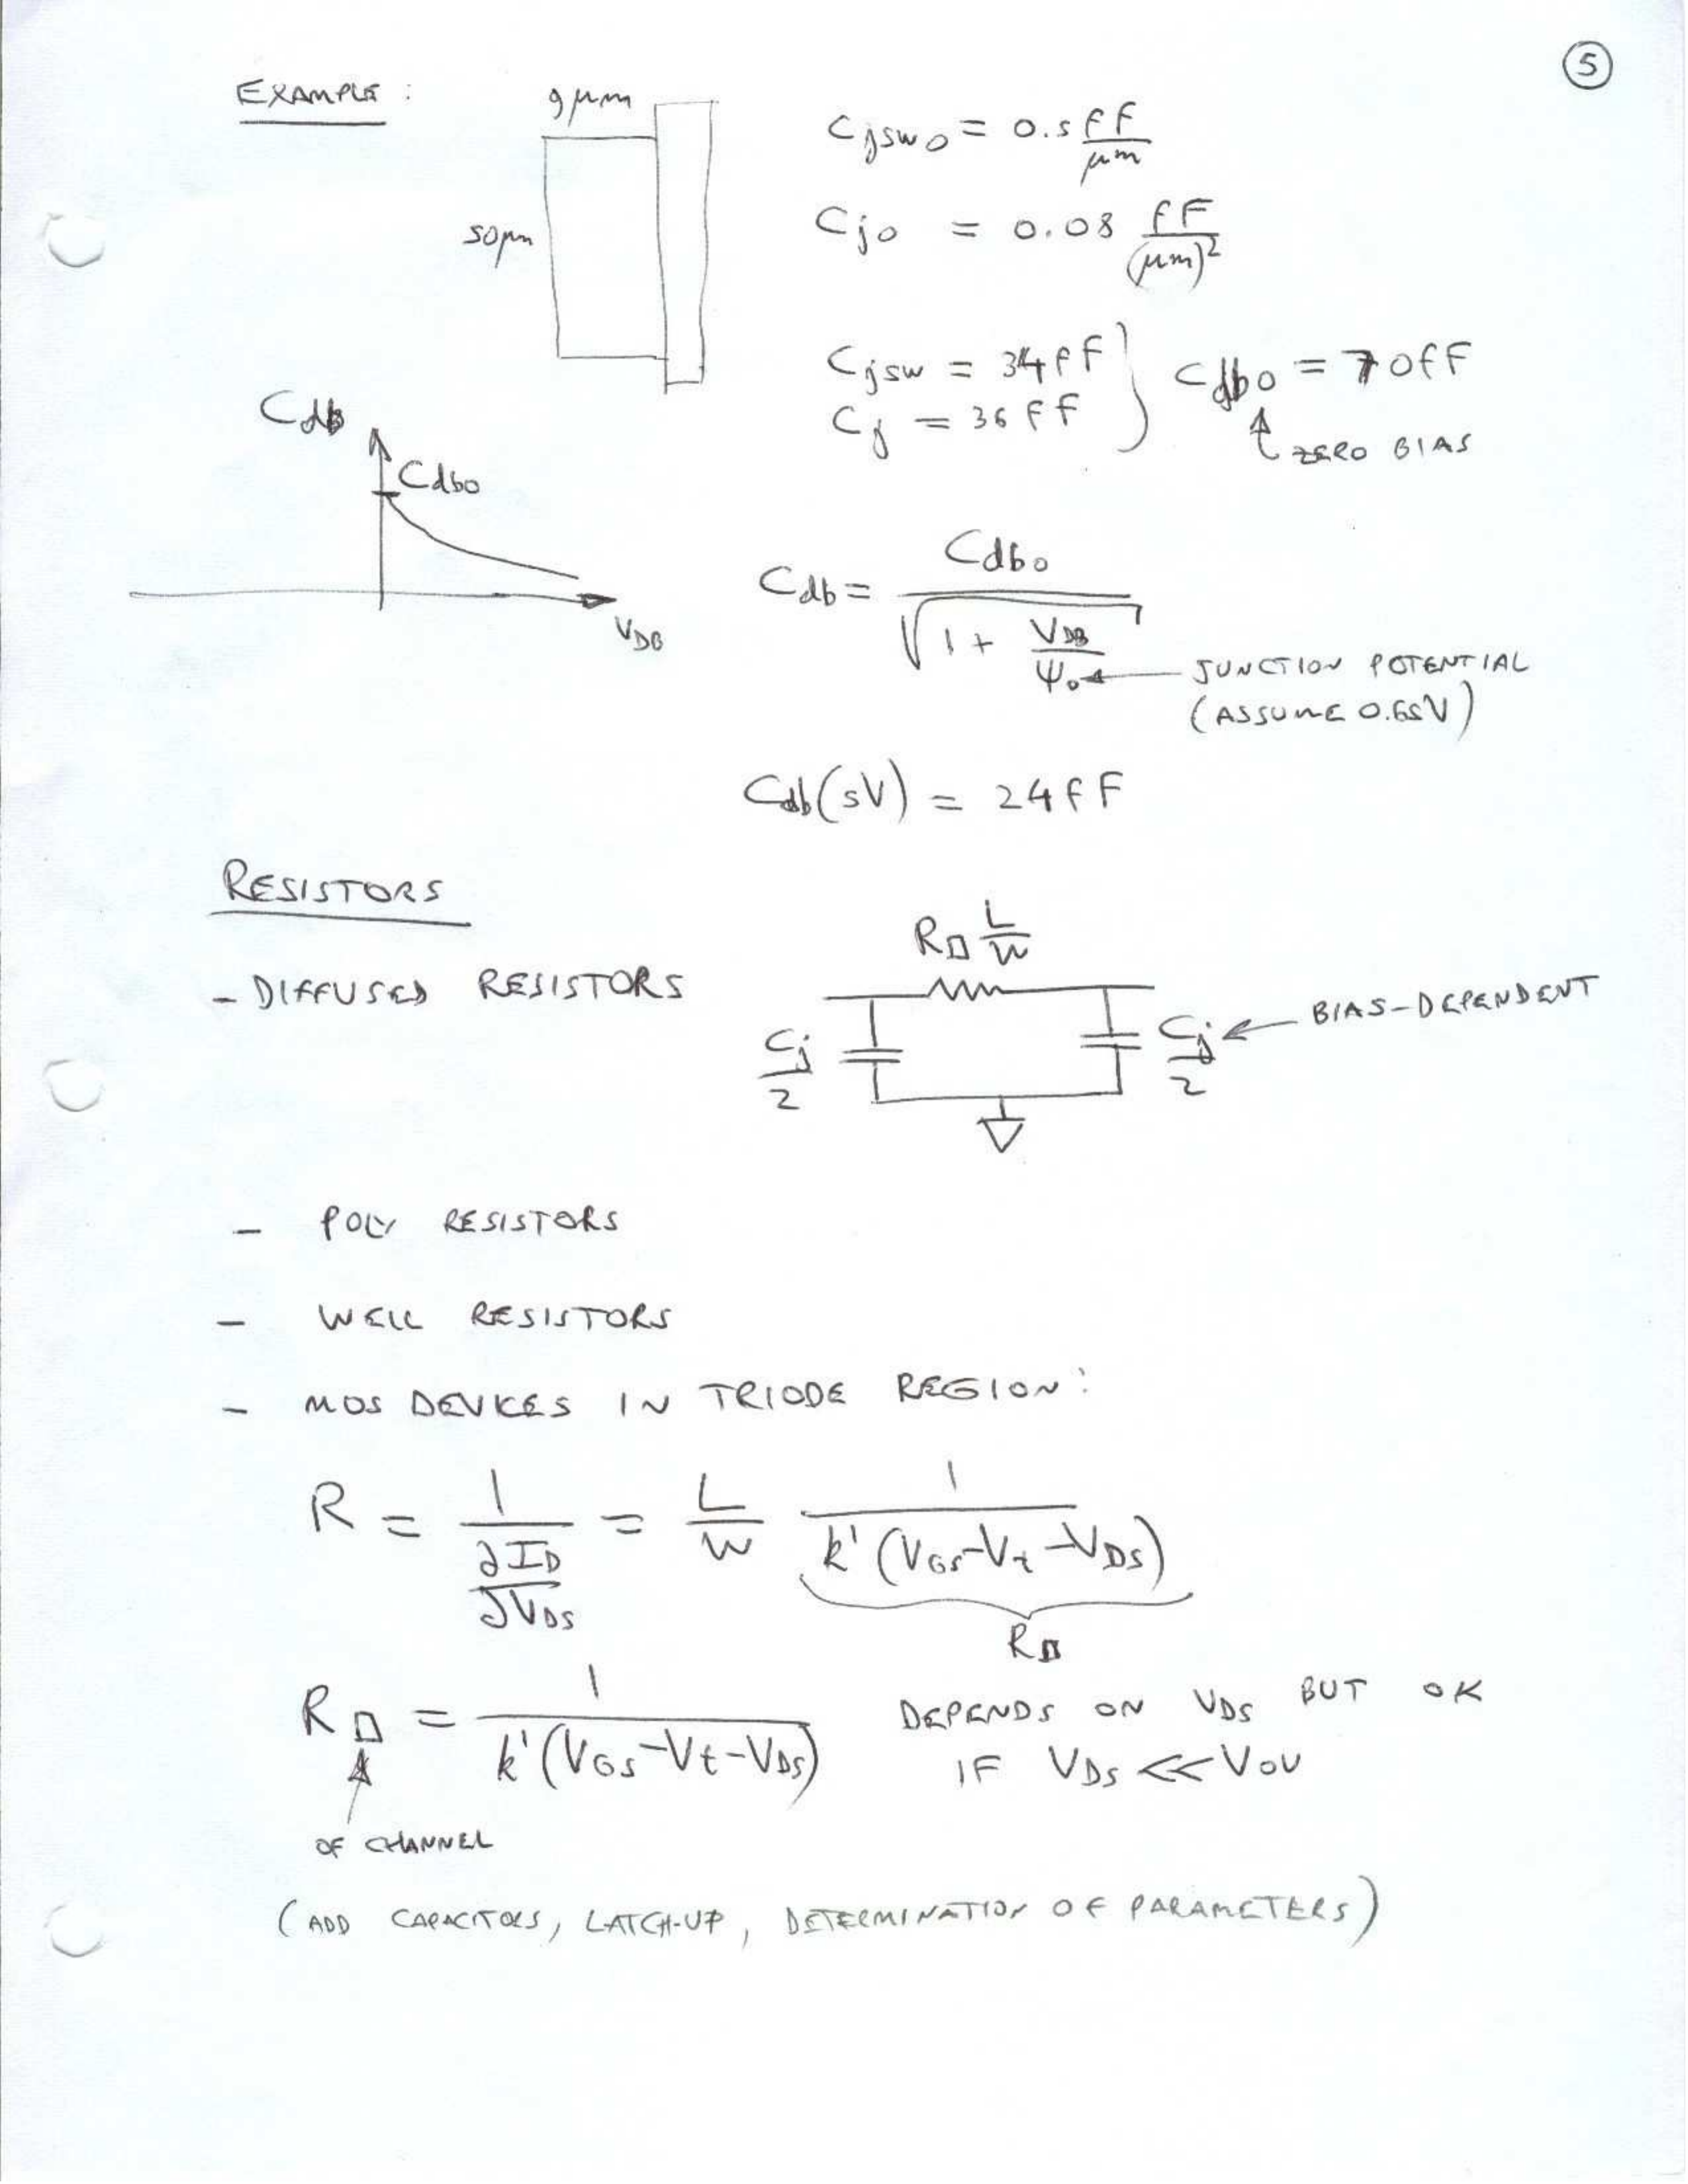 5
EXAMPLE :
9 μm
50 μm
Cjsw0 = 0.5 fF/μm
Cj0 = 0.08 fF/(μm)²
Cjsw = 34 fF
Cj = 36 fF
Cdb0 = 70 fF
ZERO BIAS
Cdb
Cdb0
VDB
Cdb = Cdb0 / √(1 + VDB/Ψ0)
JUNCTION POTENTIAL
(ASSUME 0.65V)
Cdb(5V) = 24 fF
RESISTORS
R□ L/W
- DIFFUSED RESISTORS
Cj/2
Cj/2
BIAS-DEPENDENT
- POLY RESISTORS
- WELL RESISTORS
- MOS DEVICES IN TRIODE REGION:
R = 1/(∂ID/∂VDS) = L/W 1/(k'(VGS-Vt-VDS))
R□
R□ = 1/(k'(VGS-Vt-VDS))
DEPENDS ON VDS BUT OK
IF VDS << VOV
OF CHANNEL
(ADD CAPACITORS, LATCH-UP, DETERMINATION OF PARAMETERS)